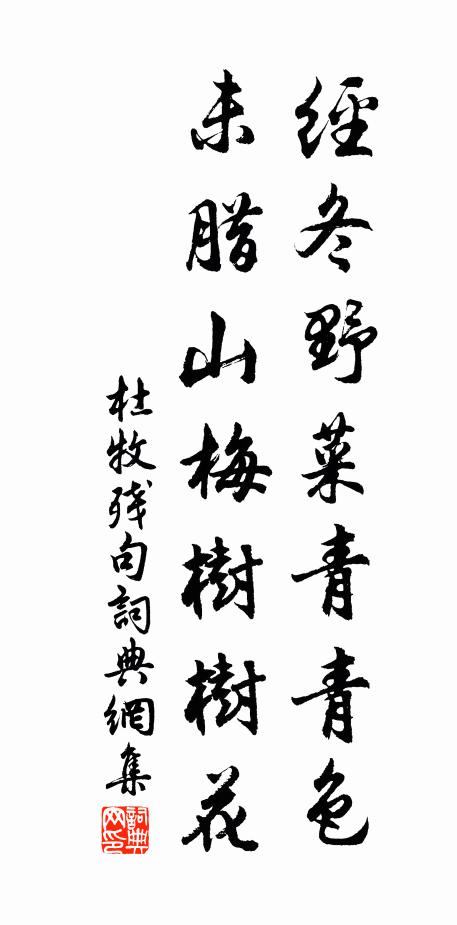 經冬野菜青青色
未腊山梅樹樹花
杜牧残句詞典網集
詞典网印